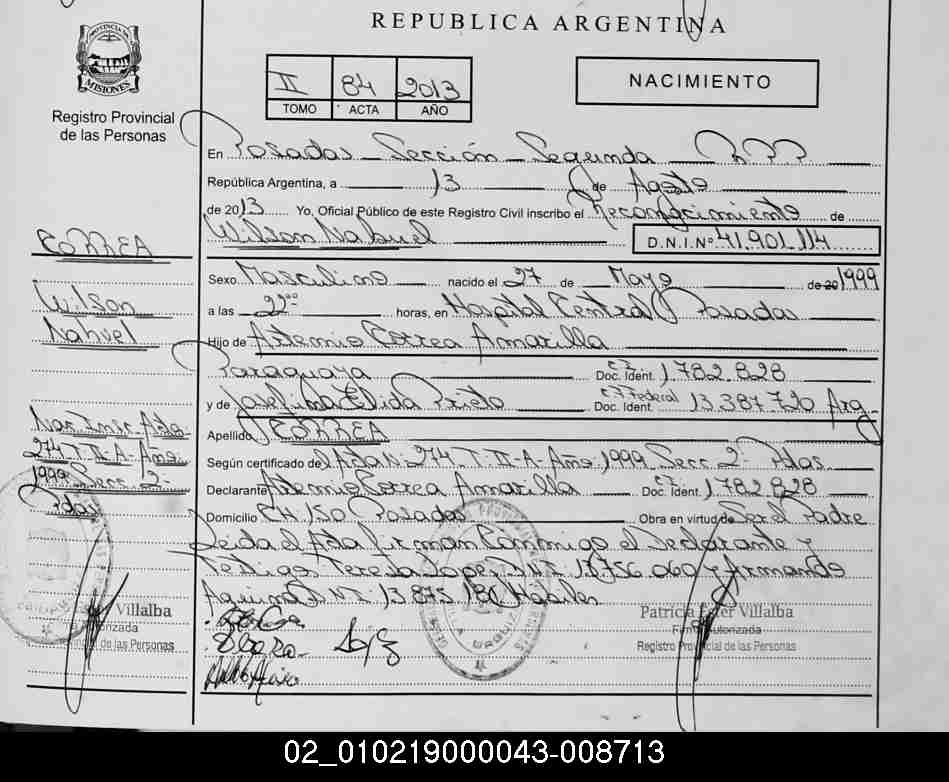 REPUBLICA ARGENTINA
PROVINCIA DE
MISIONES
Registro Provincial
de las Personas
II 84 2013
TOMO ACTA AÑO
NACIMIENTO
En Posadas Sección Segunda
República Argentina, a 13 de Agosto
de 2013 Yo, Oficial Público de este Registro Civil inscribo el Reconocimiento de
Wilson Nahuel D.N.I.Nº 41.901.114
CORREA
Wilson
Nahuel
Sexo Masculino nacido el 27 de Mayo de 20 1999
a las 22ºº horas, en Hospital Central Posadas
Hijo de Artemio Correa Amarilla
Paraguaya Doc. Ident. 1.782.828
y de Josefina Elida Prieto C.I. Federal Doc. Ident. 13.387.720 Arg.
Apellido CORREA
Nac. Insc. Acta
274 T. II-A- Año
1999 Secc 2-
Pdas
Según certificado de Acta Nº 274 T. II-A Año 1999 Secc 2- Pdas
Declarante Artemio Correa Amarilla Doc. Ident. 1.782.828
Domicilio CH. 150 Posadas Obra en virtud de Ser el Padre
Leida el Acta firman Conmigo el Declarante y
Testigos Teresa Lopez D.N.I. 13.756.060 y Armando
Aquino D.N.I. 13.875.180 Habiles
Villalba
Registro Provincial de las Personas
Patricia Villalba
Firma Autorizada
Registro Provincial de las Personas
02_010219000043-008713